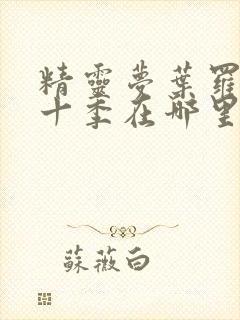 精靈夢葉羅
十季在哪里
蘇薇白